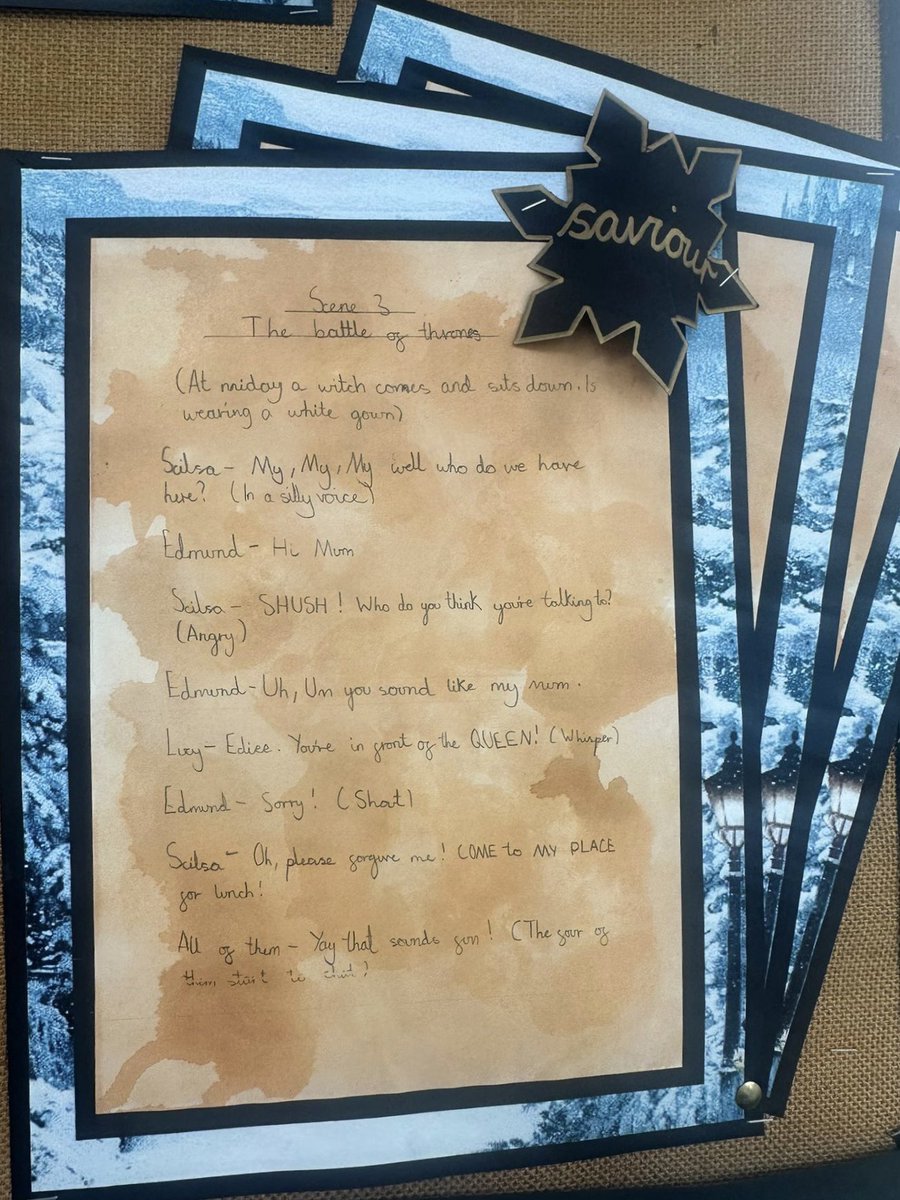 saviour
Scene 3
The battle of thrones
(At miday a witch comes and sits down. Is
wearing a white gown)
Scilsa - My, My, My well who do we have
here? (In a silly voice)
Edmund - Hi Mum
Scilsa - SHUSH! Who do you think you're talking to?
(Angry)
Edmund - Uh, Um you sound like my mum.
Lucy - Ediee. You're in front of the QUEEN! (Whisper)
Edmund - Sorry! (Shout)
Scilsa - Oh, please forgive me! COME to MY PLACE
for lunch!
All of them - Yay that sounds fun! (The four of
them start to